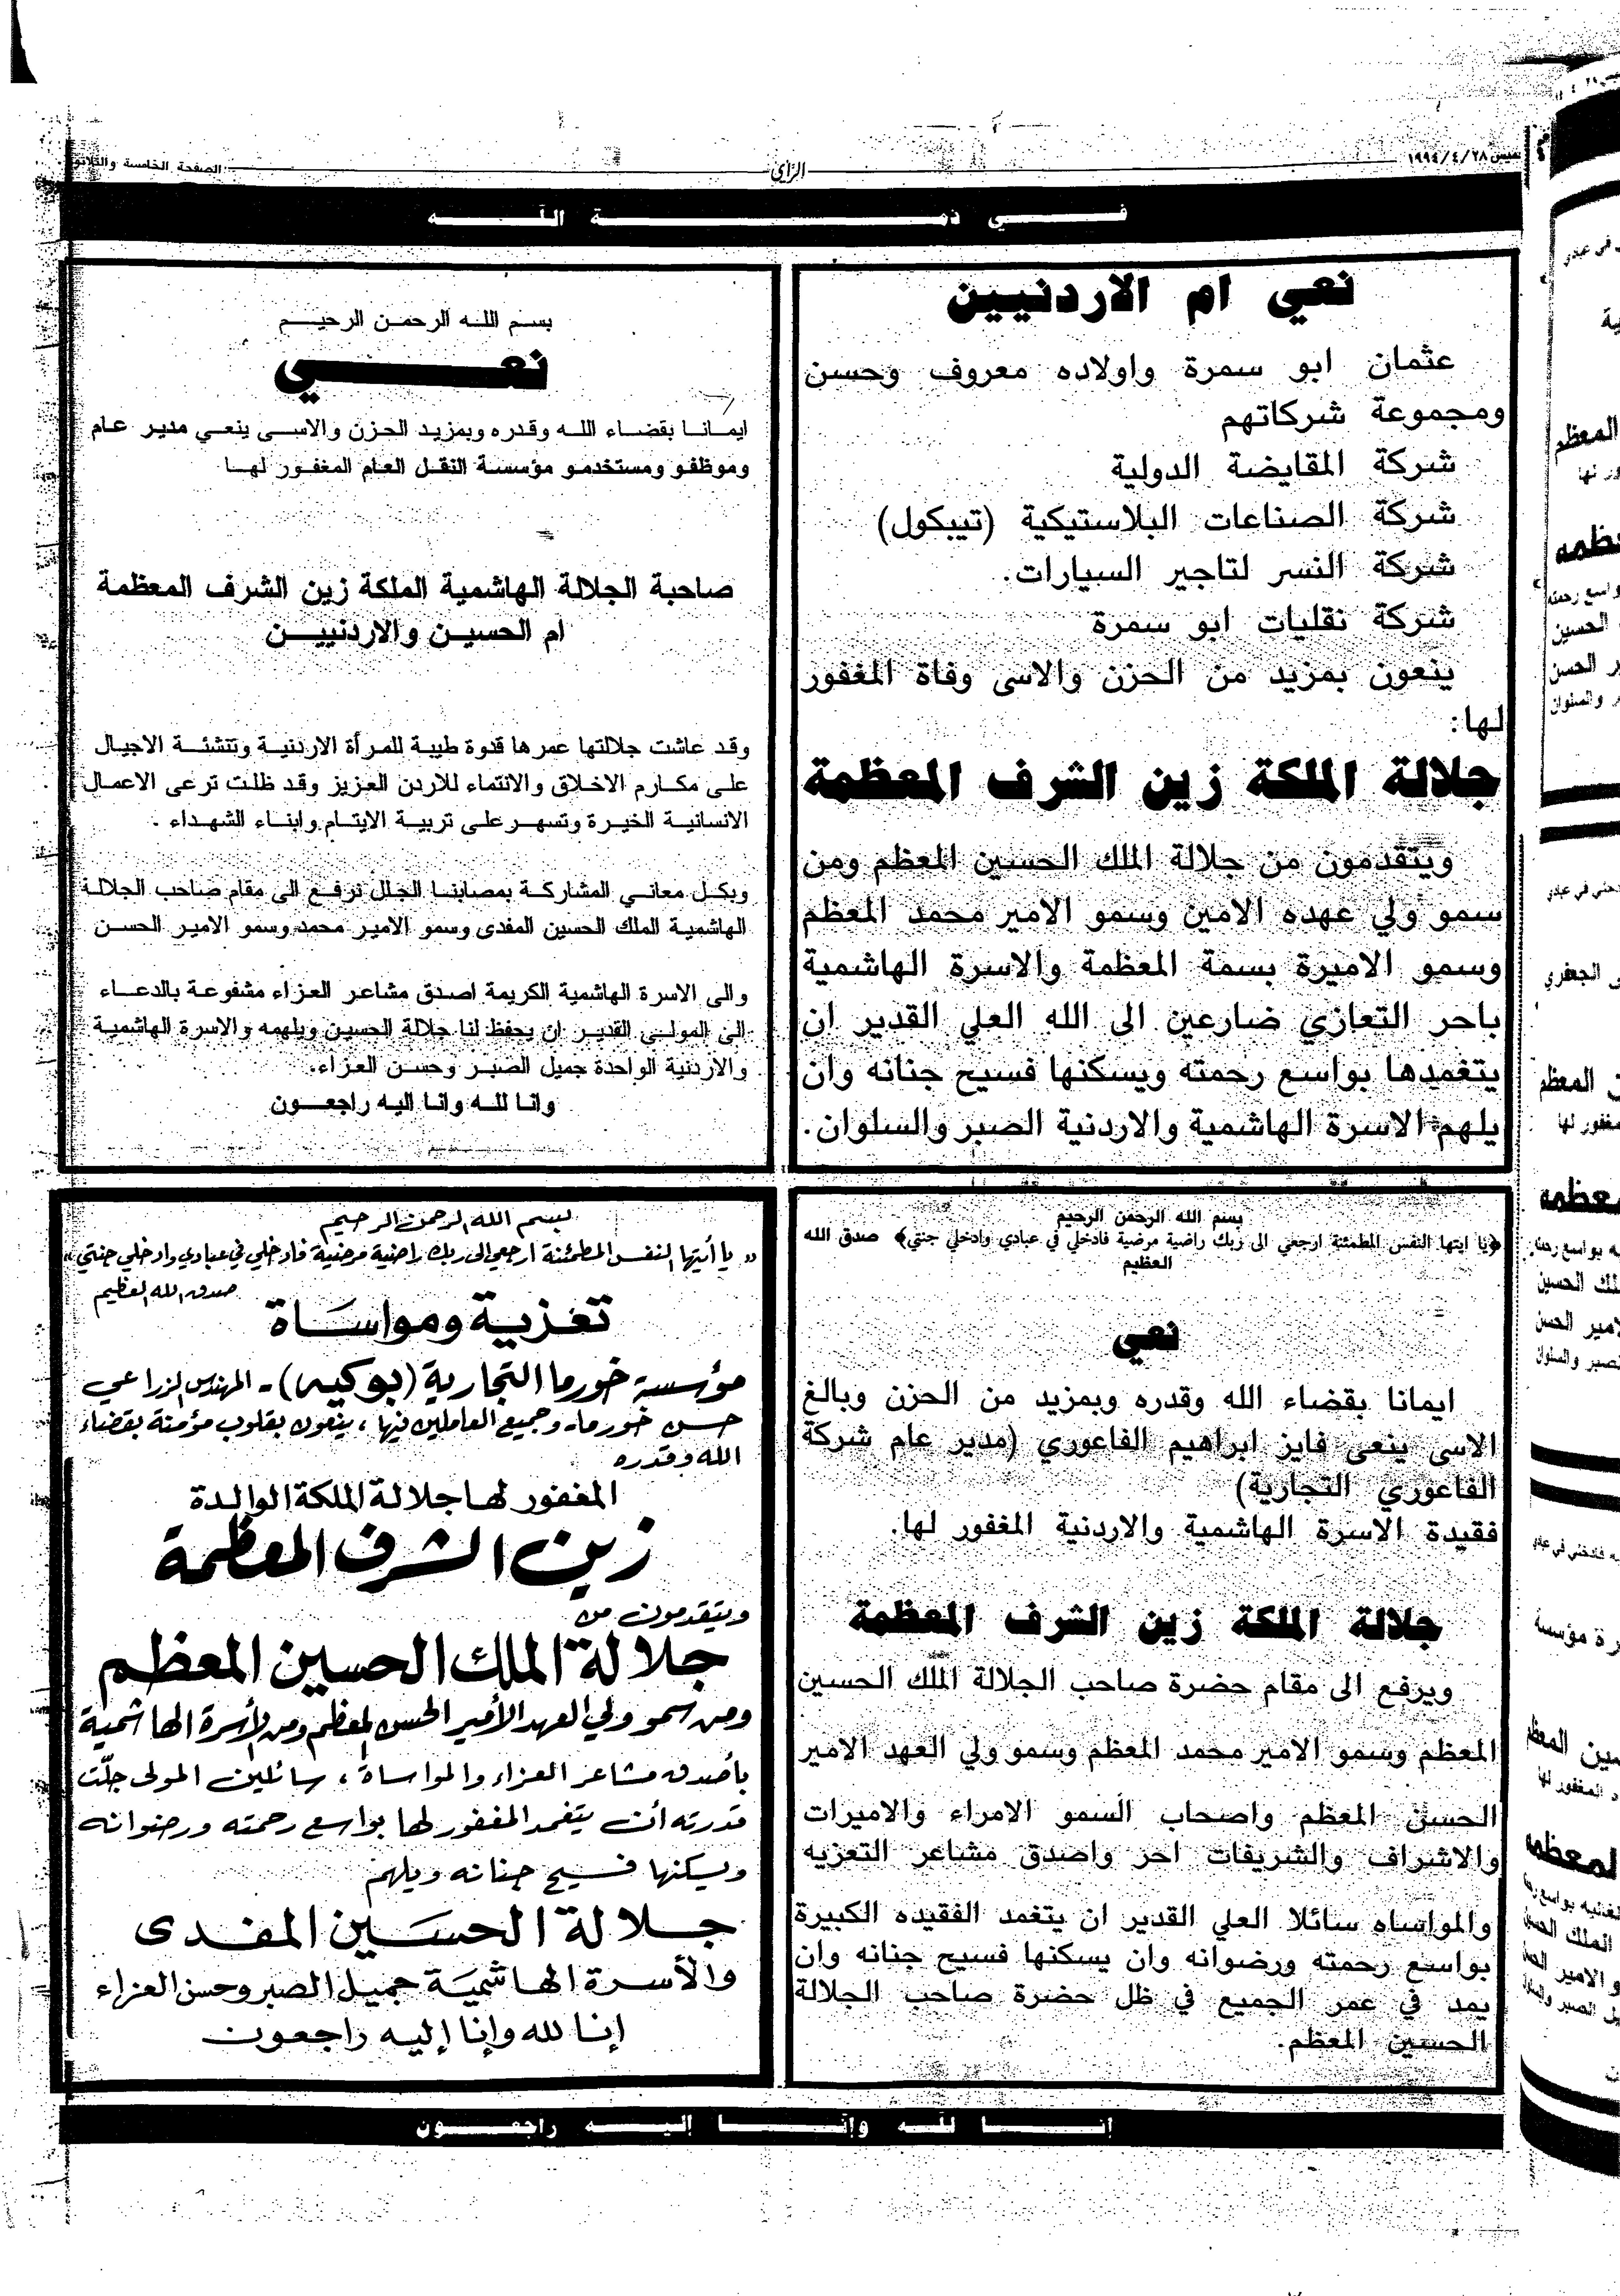 الخميس ١٩٩٤/٤/٢٨
الرأي
الصفحة الخامسة والثلاثون
في ذمة الله
نعي ام الاردنيين
عثمان ابو سمرة واولاده معروف وحسن
ومجموعة شركاتهم
شركة المقايضة الدولية
شركة الصناعات البلاستيكية (تيبكول)
شركة النسر لتاجير السيارات.
شركة نقليات ابو سمرة
ينعون بمزيد من الحزن والاسى وفاة المغفور
لها:
جلالة الملكة زين الشرف المعظمة
ويتقدمون من جلالة الملك الحسين المعظم ومن
سمو ولي عهده الامين وسمو الامير محمد المعظم
وسمو الاميرة بسمة المعظمة والاسرة الهاشمية
باحر التعازي ضارعين الى الله العلي القدير ان
يتغمدها بواسع رحمته ويسكنها فسيح جنانه وان
يلهم الاسرة الهاشمية والاردنية الصبر والسلوان.
بسم الله الرحمن الرحيم
نعي
ايمانا بقضاء الله وقدره وبمزيد الحزن والاسى ينعي مدير عام
وموظفو ومستخدمو مؤسسة النقل العام المغفور لها
صاحبة الجلالة الهاشمية الملكة زين الشرف المعظمة
ام الحسين والاردنيين
وقد عاشت جلالتها عمرها قدوة طيبة للمرأة الاردنية وتنشئة الاجيال
على مكارم الاخلاق والانتماء للاردن العزيز وقد ظلت ترعى الاعمال
الانسانية الخيرة وتسهر على تربية الايتام وابناء الشهداء .
وبكل معاني المشاركة بمصابنا الجلل نرفع الى مقام صاحب الجلالة
الهاشمية الملك الحسين المفدى وسمو الامير محمد وسمو الامير الحسن
والى الاسرة الهاشمية الكريمة اصدق مشاعر العزاء مشفوعة بالدعاء
الى المولى القدير ان يحفظ لنا جلالة الحسين ويلهمه والاسرة الهاشمية
والاردنية الواحدة جميل الصبر وحسن العزاء.
وانا لله وانا اليه راجعون
بسم الله الرحمن الرحيم
﴿يا ايتها النفس المطمئنة ارجعي الى ربك راضية مرضية فادخلي في عبادي وادخلي جنتي﴾ صدق الله
العظيم
نعي
ايمانا بقضاء الله وقدره وبمزيد من الحزن وبالغ
الاسى ينعى فايز ابراهيم الفاعوري (مدير عام شركة
الفاعوري التجارية)
فقيدة الاسرة الهاشمية والاردنية المغفور لها.
جلالة الملكة زين الشرف المعظمة
ويرفع الى مقام حضرة صاحب الجلالة الملك الحسين
المعظم وسمو الامير محمد المعظم وسمو ولي العهد الامير
الحسن المعظم واصحاب السمو الامراء والاميرات
والاشراف والشريفات احر واصدق مشاعر التعزيه
والمواساه سائلا العلي القدير ان يتغمد الفقيده الكبيرة
بواسع رحمته ورضوانه وان يسكنها فسيح جنانه وان
يمد في عمر الجميع في ظل حضرة صاحب الجلالة
الحسين المعظم.
بسم الله الرحمن الرحيم
" يا أيتها النفس المطمئنة ارجعي إلى ربك راضية مرضية فادخلي في عبادي وادخلي جنتي "
صدق الله العظيم
تعزية ومواساة
مؤسسة خورما التجارية (بوكيه) - المهندس الزراعي
حسن خورما، وجميع العاملين فيها، ينعون بقلوب مؤمنة بقضاء
الله وقدره
المغفور لها جلالة الملكة الوالدة
زين الشرف المعظمة
ويتقدمون من
جلالة الملك الحسين المعظم
ومن سمو ولي العهد الأمير الحسن المعظم ومن الأسرة الهاشمية
بأصدق مشاعر العزاء والمواساة، سائلين المولى جلّت
قدرته أن يتغمد المغفور لها بواسع رحمته ورضوانه
ويسكنها فسيح جنانه ويلهم
جلالة الحسين المفدى
والأسرة الهاشمية جميل الصبر وحسن العزاء
إنا لله وإنا إليه راجعون
إنا لله وإنا إليه راجعون